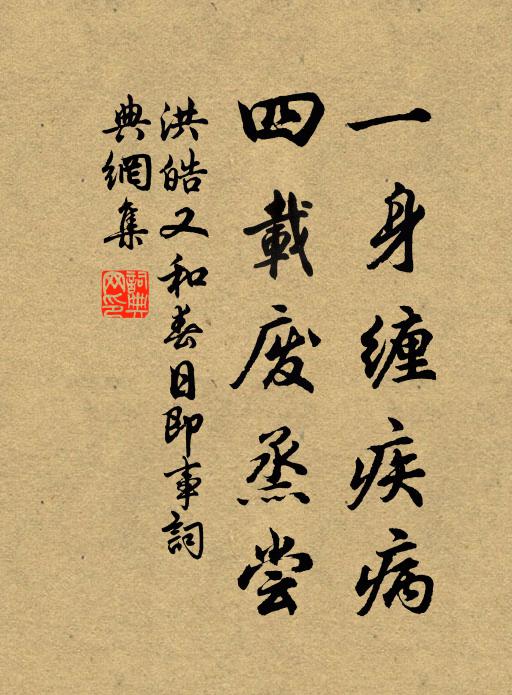 一身缠疾病
四載废蒸尝
洪皓又和春日即事詞
典網集
詞典網印